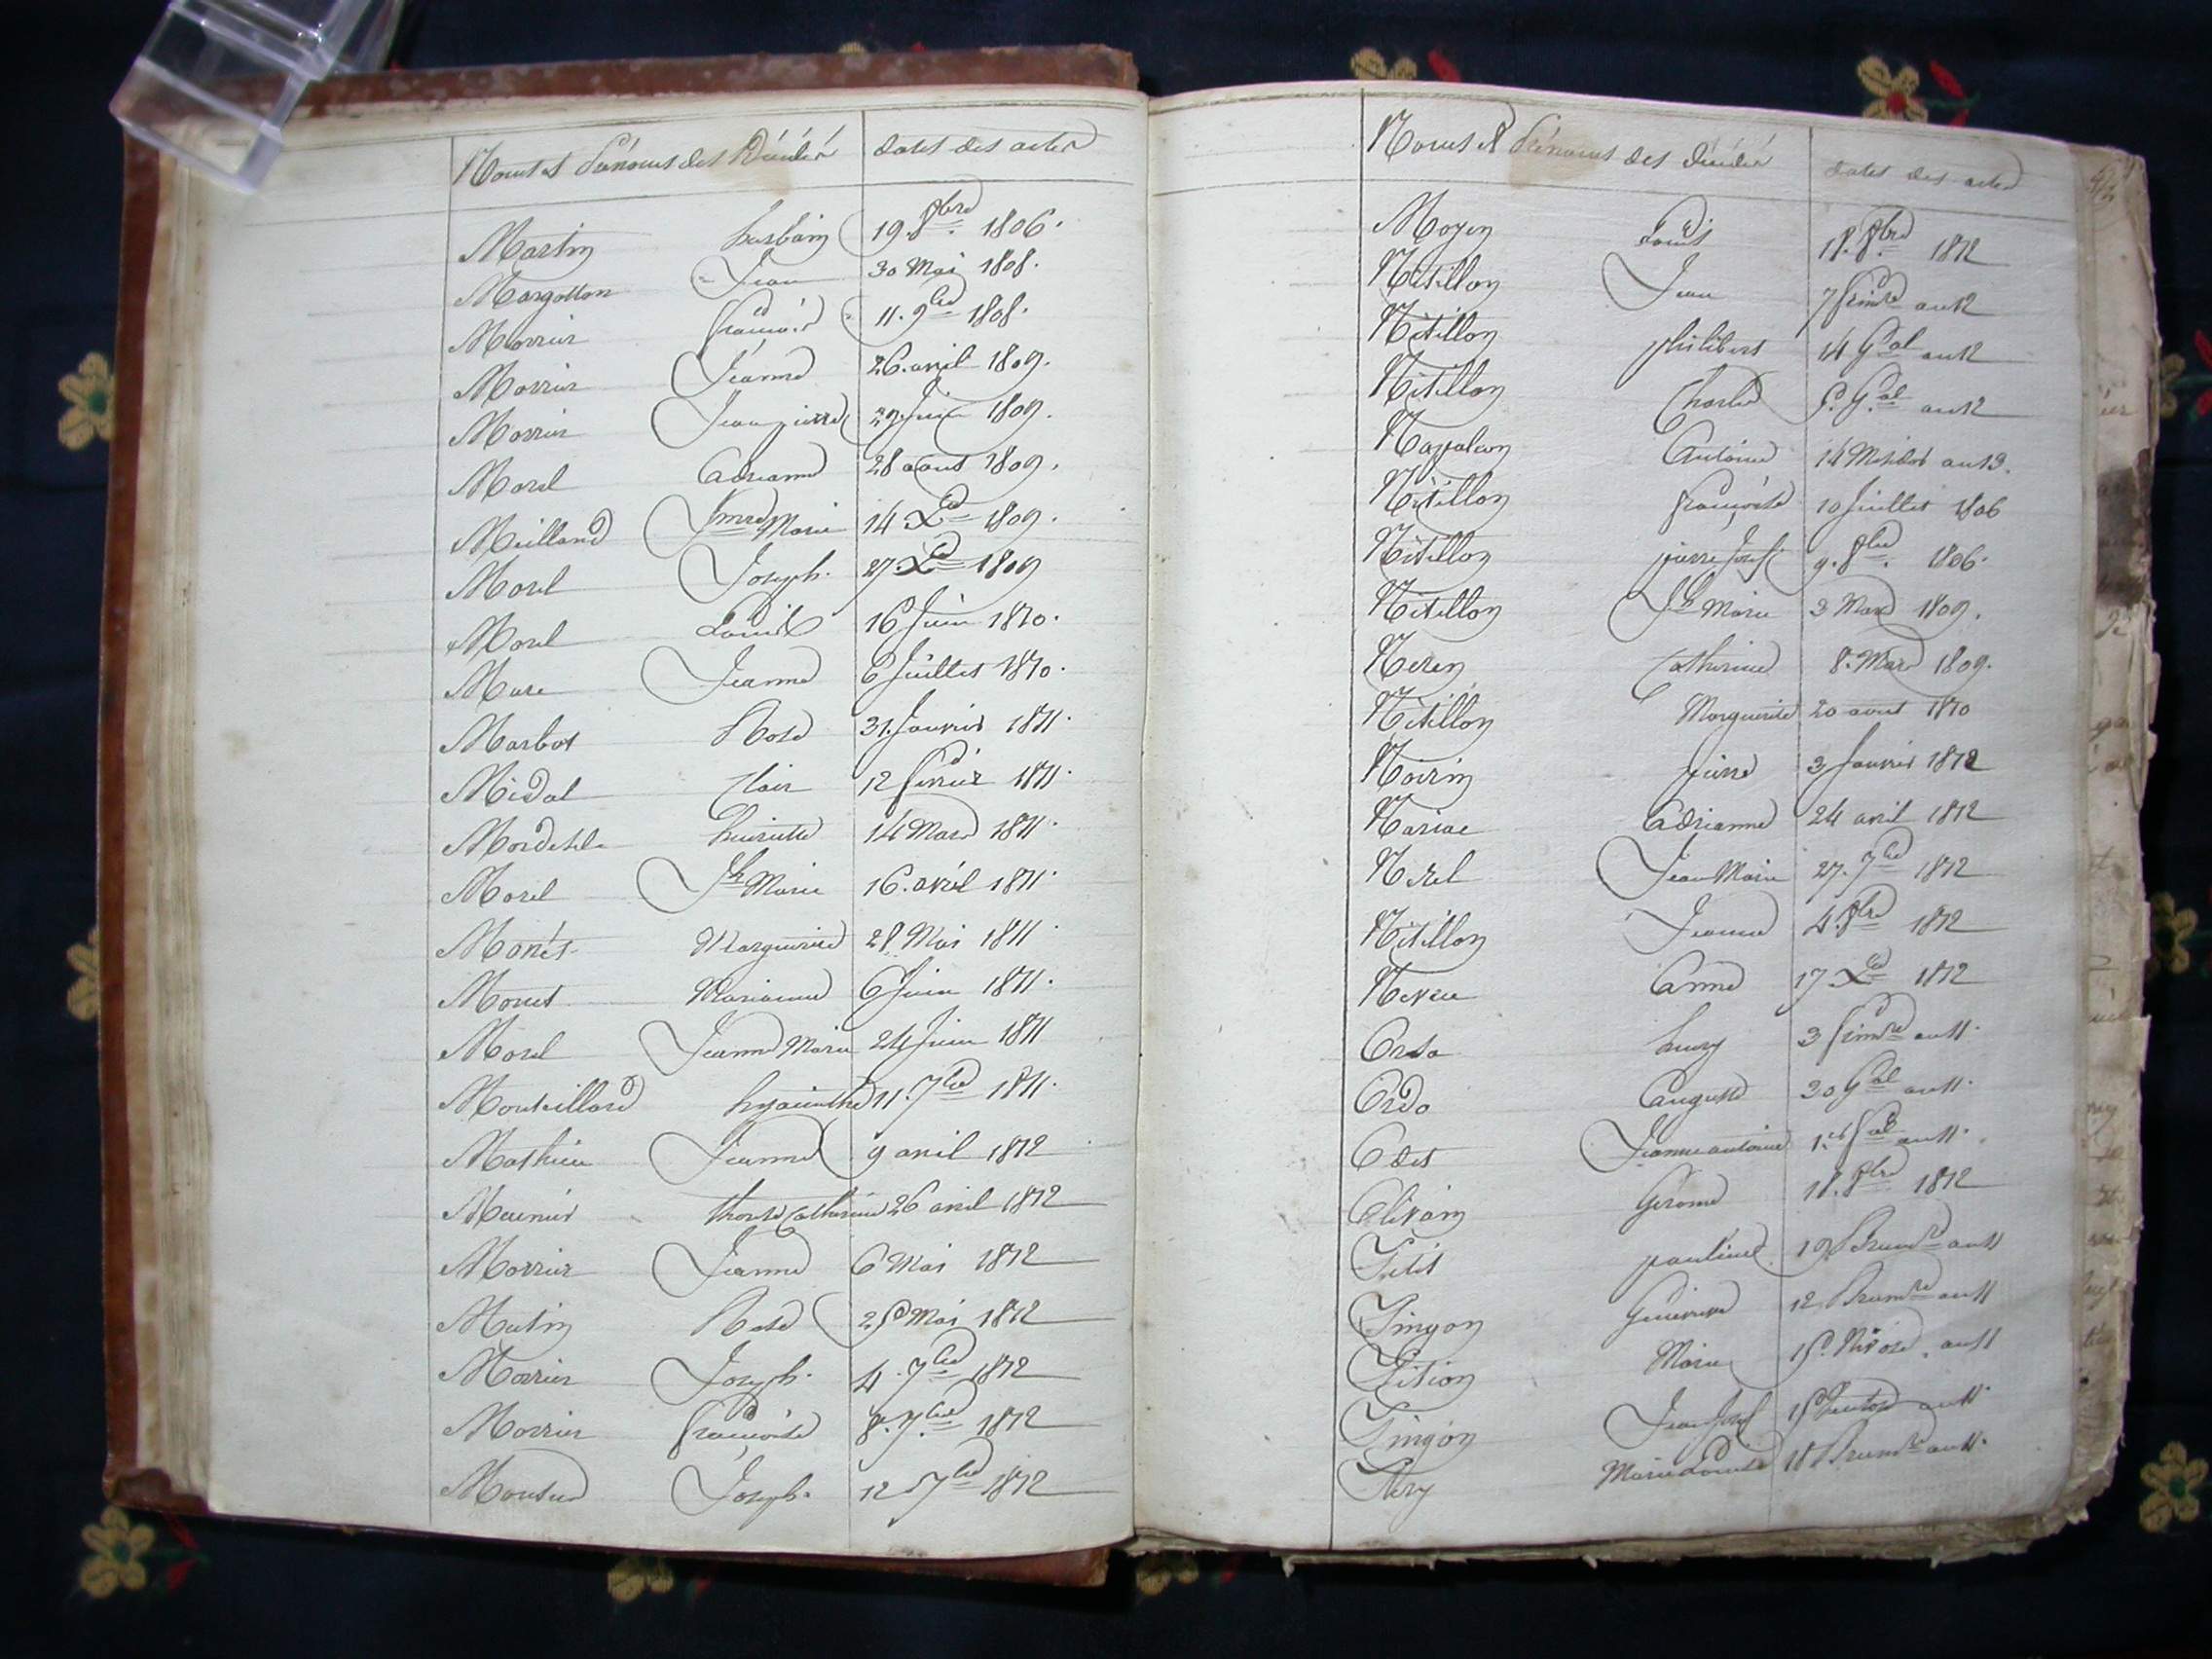 Noms et Prénoms des Décédés dates des actes
Martin 19 8bre 1806.
Margotton Jean 30 Mai 1808.
Morrier françois 11. 9bre 1808.
Morrier Jeanne 26. avril 1809.
Morrier Jean pierre 29 Juin 1809.
Morel Adrianne 28 aout 1809.
Meilland Marie 14 Xbre 1809.
Morel Joseph. 27. Xbre 1809
Morel Louis 16 Juin 1810.
Mure Jeanne 6 Juillet 1810.
Marbot Rose 31. Janvier 1811.
Midal Clair 12 fevrier 1811.
henriette 14 Mars 1811.
Morel Jh Marie 16. avril 1811.
Monet Marguerite 28 Mai 1811.
Monet Marianne 6 Juin 1811.
Morel Jeanne Marie 24 Juin 1811
Monteillard hyacinthe 11. 7bre 1811.
Mathieu Jeanne 9 avril 1812
Meunier therese Catherine 26 avril 1812
Morrier Jeanne 6 Mai 1812
Mutin Rose Mai 1812
Morrier Joseph. 4. 7bre 1812
Morrier françoise 8. 7bre 1812
Joseph. 12 7bre 1812
Noms et Prénoms des Décédés dates des actes
Moyen Louis 18. 8bre 1812
Nétillon Jean 7 frimre an 12
Nétillon philibert 14 Gal an 12
Nétillon Charles 5. Gal an 12
Napoleon Antoine 14 Messidor an 13.
Nétillon françoise 10 Juillet 1806
Nétillon pierre Josef 9. 8bre. 1806.
Nétillon Jh Marie 3 Mars 1809.
Neren Catherine 8. Mars 1809.
Nétillon Marguerite 20 aout 1810
Noirin pierre 3 Janvier 1812
Nariac Adrianne 24 avril 1812
Nerel Jean Marie 27. 7bre 1812
Nétillon Jeanne 4. 8bre 1812
Neveu Anne 17 Xbre 1812
Orda henry 3 frimre an 11.
Ordo Auguste 20 Gal an 11.
Odet Jeanne antoine 1er an 11.
Olivain Gerome 18. 8bre 1812
Petit pauline 19 Brumre an 11
Pingon Genevieve 12 Brumre an 11
Pition Marie 15. Nivose. an 11
Pingon Jean Josef 15 Ventose an 11.
Pery Marie Louise 18 Brumre an 11.